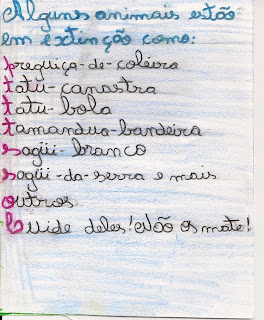 Alguns animais estão
em extinção como:
preguiça-de-coleira
tatu-canastra
tatu-bola
tamandua-bandeira
sagüi-branco
sagüi-da-serra e mais
outros
Cuide deles! Não os mate!